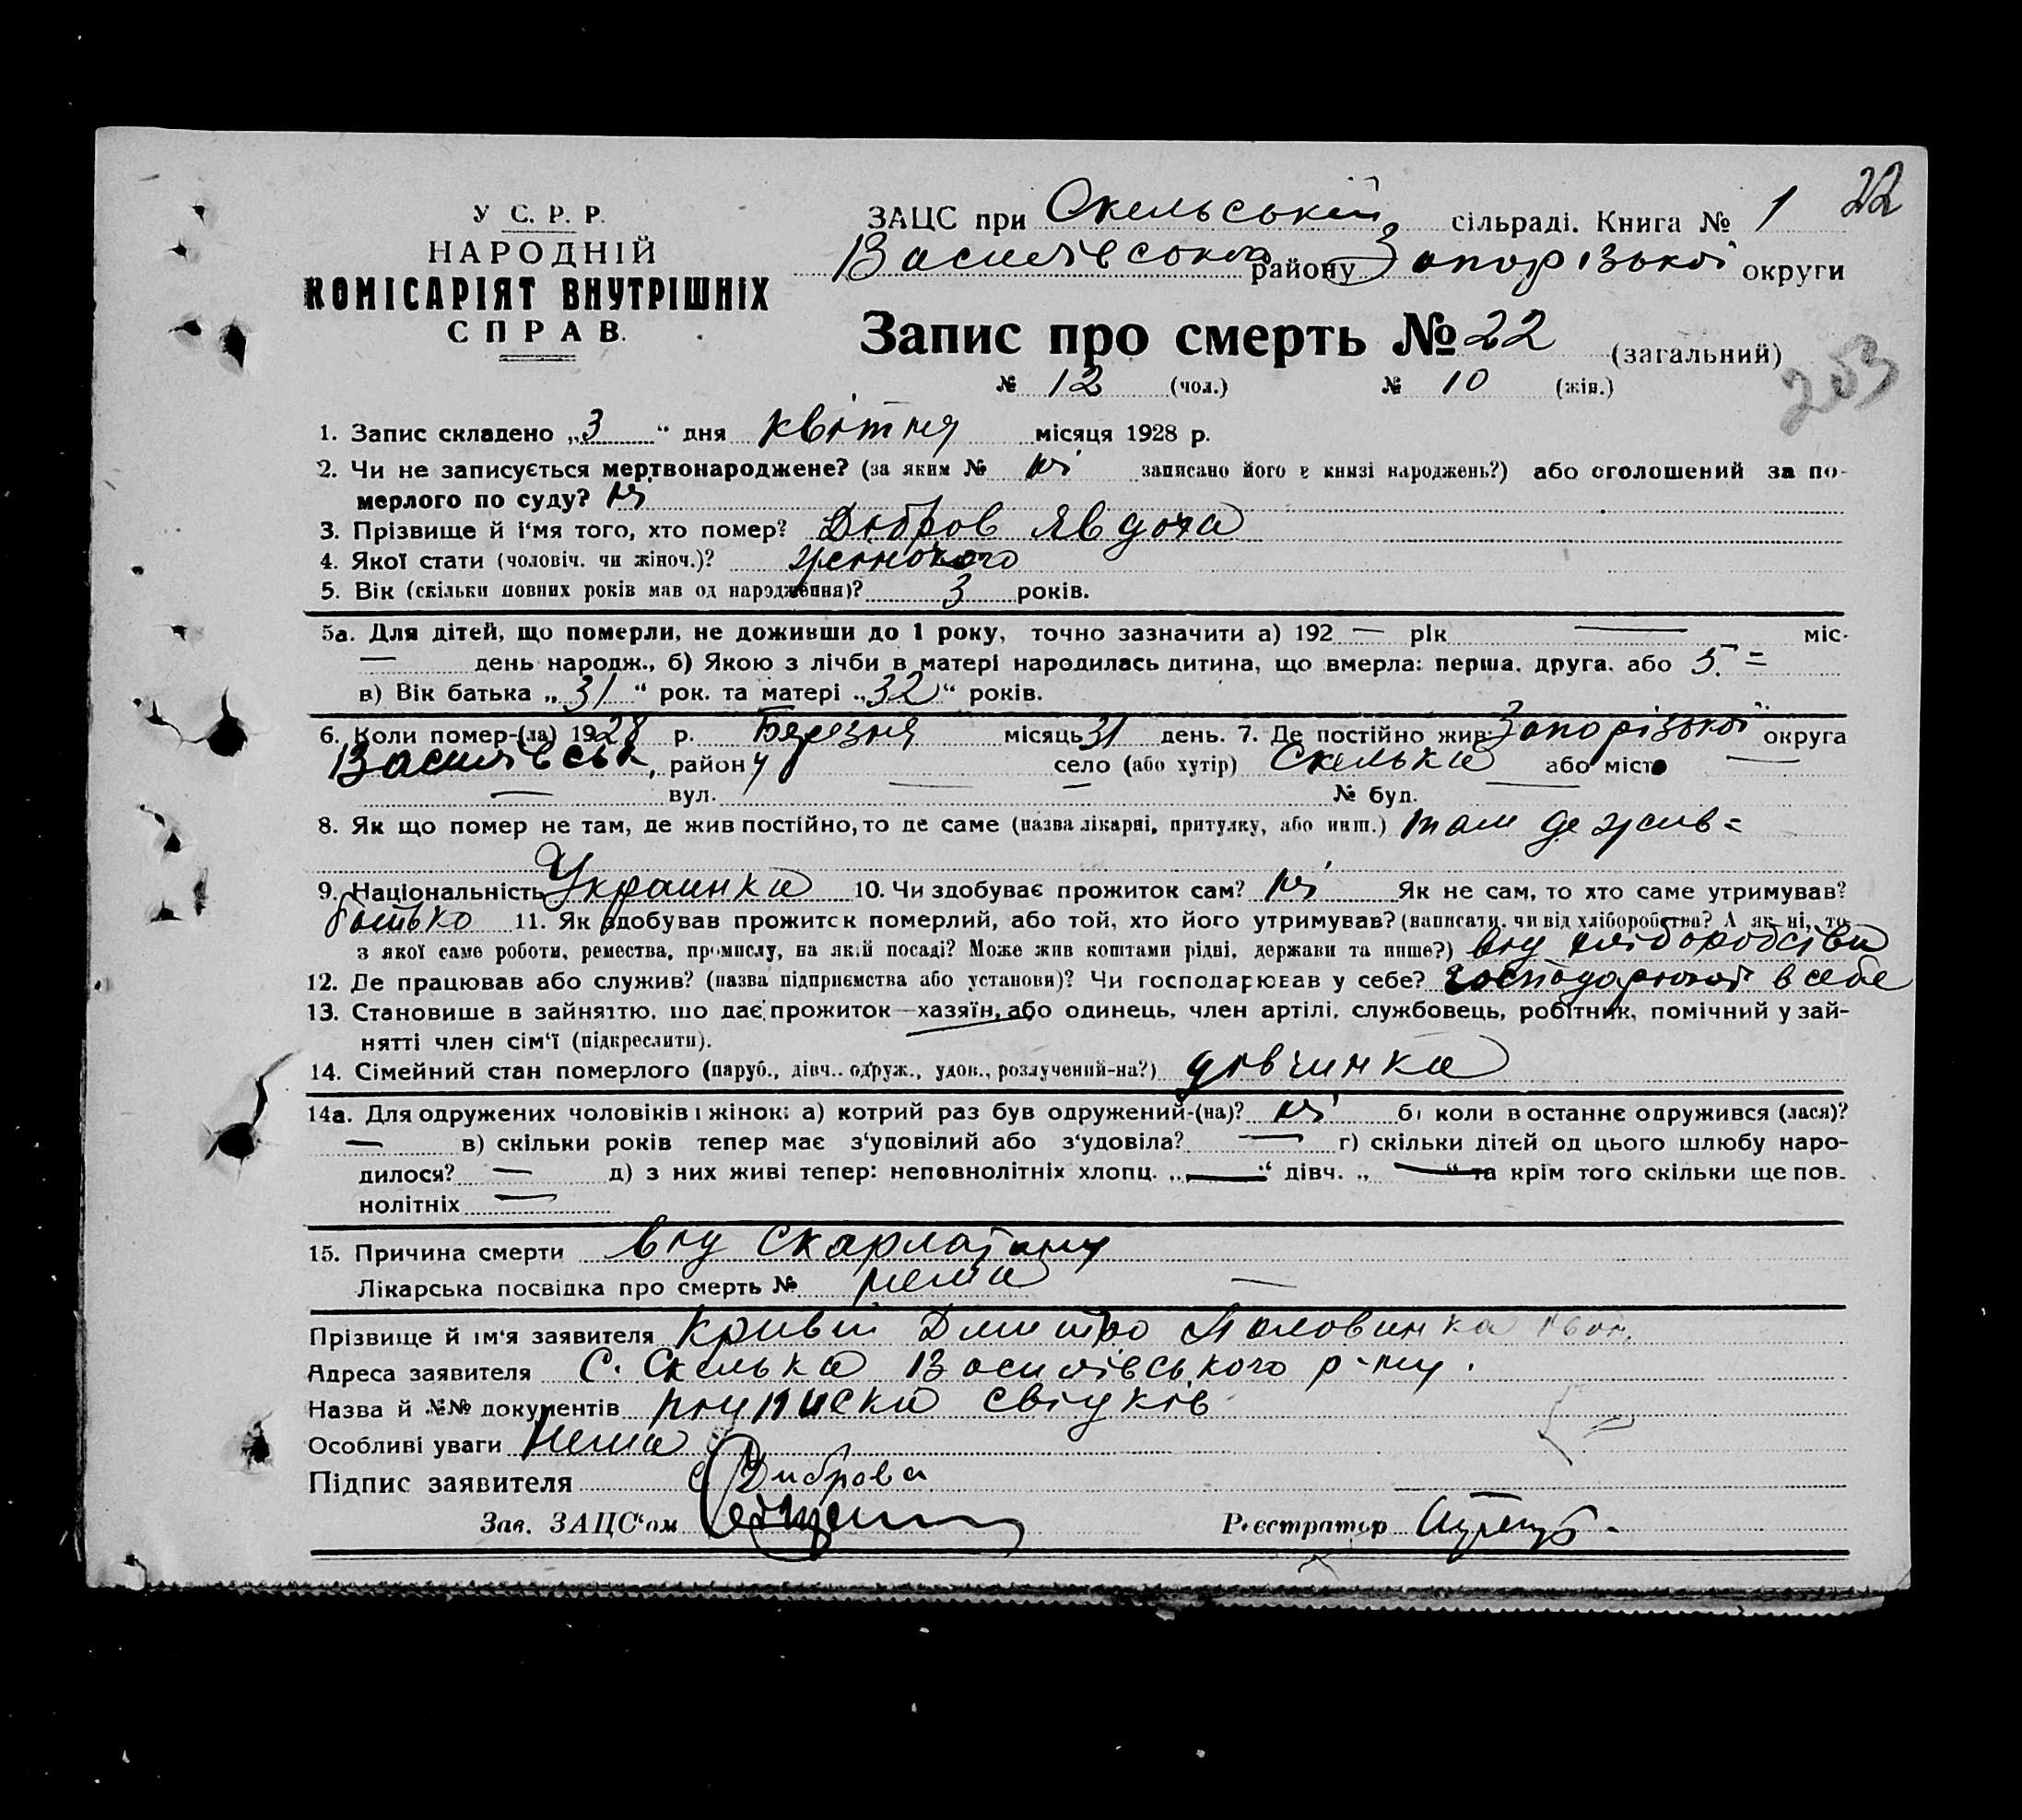 22
У С. Р. Р.
НАРОДНІЙ
КОМІСАРІЯТ ВНУТРІШНІХ
СПРАВ.
ЗАЦС при Скельській сільраді. Книга № 1
Василівського району Запорізької округи
Запис про смерть № 22 (загальний)
№ 12 (чол.) № 10 (жін.)
203
1. Запис складено „3“ дня квітня місяця 1928 р.
2. Чи не записується мертвонароджене? (за яким № ні записано його в книзі народжень?) або оголошений за по-
мерлого по суду? ні
3. Прізвище й і‘мя того, хто помер? Діброва Явдоха
4. Якої стати (чоловіч. чи жіноч.)? жіночого
5. Вік (скільки повних років мав од народження)? 3 років.
5а. Для дітей, що померли, не доживши до 1 року, точно зазначити а) 192 — рік — міс-
— день народж., б) Якою з лічби в матері народилась дитина, що вмерла: перша, друга, або 5. =
в) Вік батька „31“ рок. та матері „32“ років.
6. Коли помер-(ла) 1928 р. Березня місяць 31 день. 7. Де постійно жив Запорізької округа
Василівськ, району село (або хутір) Скелька або місто —
— вул. — № буд. —
8. Як що помер не там, де жив постійно, то де саме (назва лікарні, притулку, або инш.) там де жив =
9. Національність Украинка 10. Чи здобуває прожиток сам? ні Як не сам, то хто саме утримував?
батько 11. Як здобував прожиток померлий, або той, хто його утримував? (написати, чи від хліборобства? А як ні, то
з якої саме роботи, ремества, промислу, на якій посаді? Може жив коштами рідні, держави та инше?) від хліборобства
12. Де працював або служив? (назва підприємства або установи)? Чи господарював у себе? в себе
13. Становище в зайняттю, що дає прожиток—хазяїн, або одинець, член артілі, службовець, робітник, помічний у зай-
нятті член сім‘ї (підкреслити).
14. Сімейний стан померлого (паруб., дівч., одруж., удов., розлучений-на?) дівчинка
14а. Для одружених чоловіків і жінок: а) котрий раз був одружений-(на)? ні б) коли в останнє одружився (лася)?
— в) скільки років тепер має з‘уповілий або з‘удовіла? — г) скільки дітей од цього шлюбу наро-
дилося? — д) з них живі тепер: неповнолітніх хлопц. „—“ дівч. „—“ та крім того скільки ще пов-
нолітніх —
15. Причина смерти від скарлатину
Лікарська посвідка про смерть № нема —
Прізвище й ім‘я заявителя Дмитро
Адреса заявителя С. Скелька Василівського р-ну.
Назва й №№ документів підписка свідків
Особливі уваги Нема
Підпис заявителя Диброва
Зав. ЗАЦС‘ом
Реєстратор